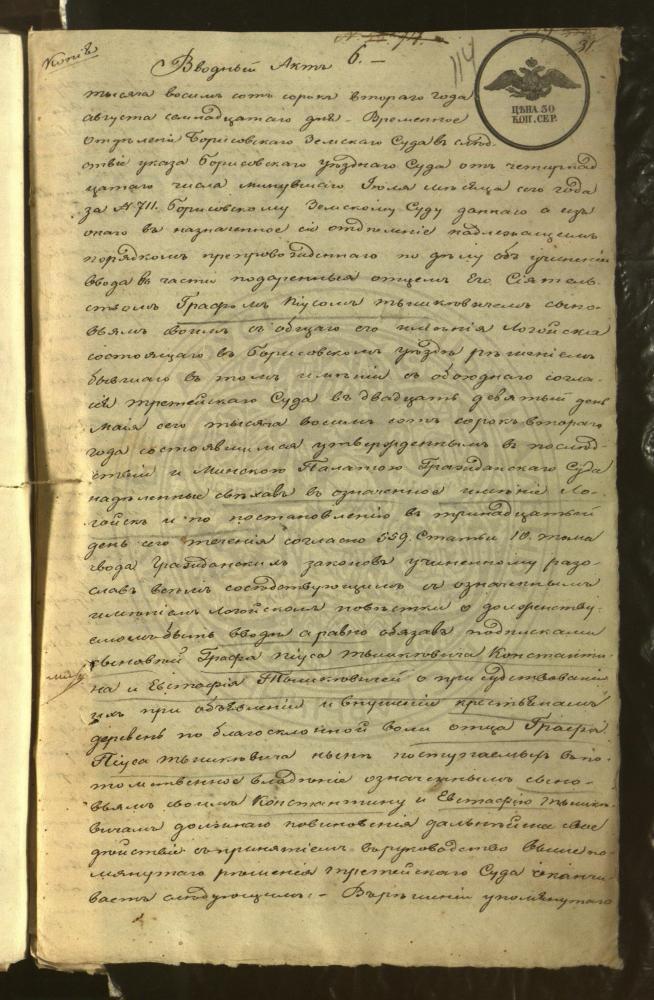 Копія
31.
114
Вводный Актъ 6.
ЦѢНА 30
КОП. СЕР.
тысяча восемъ сотъ сорокъ втораго года
августа семнадцатаго дня. Временное
Отдѣленіе Борисовскаго Земскаго Суда въ слѣд-
ствіе указа Борисовскаго уѣзднаго Суда отъ четырнад
цатаго числа минувшаго Іюля мѣсяца сего года
за № 711. Борисовскому Земскому Суду даннаго а изъ
онаго въ назначенное сіе отдѣленіе надлежащимъ
порядкомъ препровожденнаго по дѣлу объ учиненіи
ввода въ части подаренныя отцемъ Его Сіятель-
ствомъ Графомъ Піусомъ Тышкевичемъ сыно-
вьямъ своимъ съ общаго его имѣнія Логойска
состоящаго въ Борисовскомъ уѣздѣ рѣшеніемъ
бывшаго въ томъ имѣніи съ обоюднаго согла-
сія третейскаго Суда въ двадцать девятый день
Мая сего тысяча восемъ сотъ сорокъ втораго
года состоявшимся утвержденнымъ въ послѣд-
ствіи и Минскою Палатою Гражданскаго Суда
надѣленные съѣхавъ въ означенное имѣніе Ло-
гойскъ и по постановленію въ тринадцатый
день сего теченія согласно 559. Статьи 10. тома
свода Гражданскихъ законовъ учиненному разо-
славъ всѣмъ сосѣдствующимъ съ означеннымъ
имѣніемъ Логойскомъ повѣстки о долженству-
емомъ быть вводѣ а равно обязавъ подписками
сыновей Графа Піуса Тышкевича Константи-
на и Евстафія Тышкевичей о присудствованіи
ихъ при объявленіи и внушеніи крестьянамъ
деревень по благосклонной воли отца Графа
Піуса Тышкевича нынѣ поступаемыхъ въ по-
томственное владѣніе означеннымъ сыно-
вьямъ своимъ Константину и Евстафію Тышке-
вичамъ должнаго повиновенія дальнѣйшіе свое
дѣйствіе съ принятіемъ въ руководство выше по-
мянутаго рѣшенія третейскаго Суда оканчи-
ваетъ слѣдующимъ: - Въ рѣшеніи упомянутаго